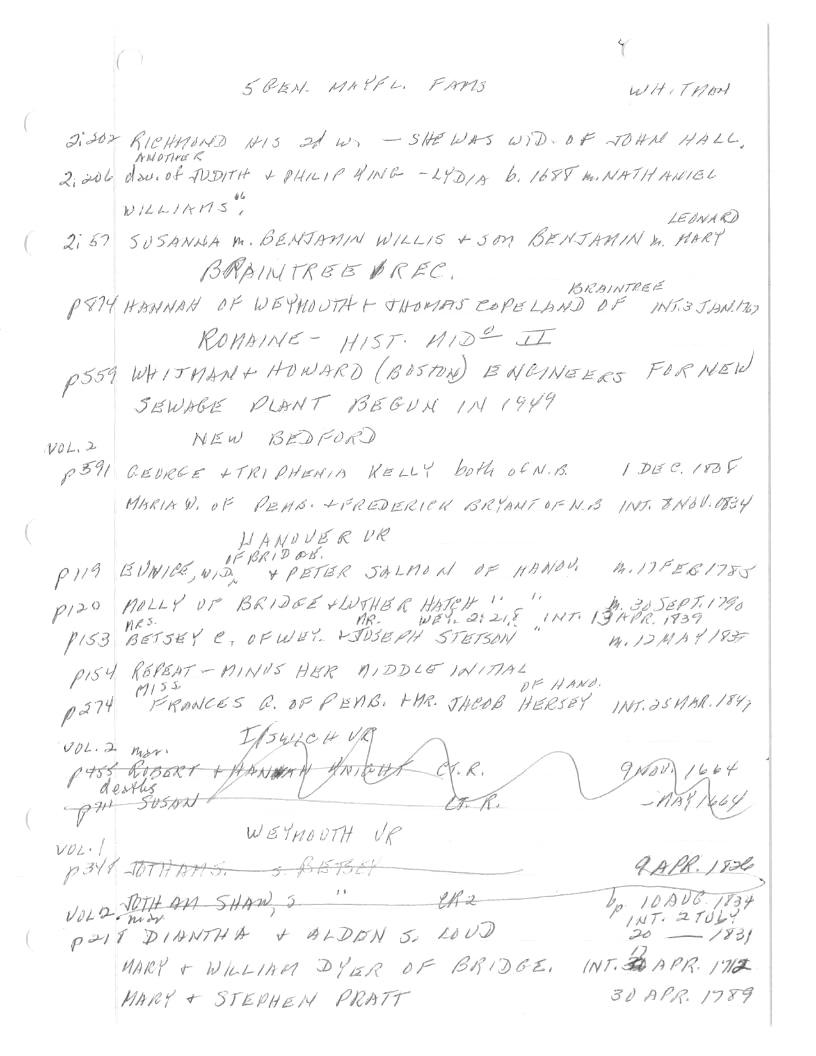 4
5 GEN. MAYFL. FAMS WHITMAN
2:202 RICHMOND HIS 2d W. — SHE WAS WID. OF JOHN HALL.
ANOTHER
2:206 dau. of JUDITH + PHILIP KING - LYDIA b. 1688 m. NATHANIEL
WILLIAMS".
LEONARD
2:57 SUSANNA m. BENJAMIN WILLIS + son BENJAMIN m. MARY
BRAINTREE REC.
BRAINTREE
p874 HANNAH OF WEYMOUTH + THOMAS COPELAND OF INT. 3 JAN. 1767
ROMAINE - HIST. MIDO II
p559 WHITMAN + HOWARD (BOSTON) ENGINEERS FOR NEW
SEWAGE PLANT BEGUN IN 1949
VOL. 2 NEW BEDFORD
p591 GEORGE + TRIPHENIA KELLY both of N.B. 1 DEC. 1808
MARIA W. OF PEMB. + FREDERICK BRYANT OF N.B INT. 8 NOV. 1834
HANOVER VR
OF BRIDGE.
p119 EUNICE, WID, + PETER SALMON OF HANOV. m. 17 FEB 1785
p120 MOLLY OF BRIDGE + LUTHER HATCH " " m. 30 SEPT. 1790
MRS. MR. WEY. 2:218 INT. 13 APR. 1839
p153 BETSEY C. OF WEY. + JOSEPH STETSON " m. 12 MAY 183
p154 REPEAT - MINUS HER MIDDLE INITIAL
MISS OF HANO.
p274 FRANCES A. OF PEMB. + MR. JACOB HERSEY INT. 25 MAR. 1847
VOL. 2 mar. IPSWICH VR
p455 ROBERT + HANNAH KNIGHT CT. R. 9 NOV. 1664
deaths
p711 SUSAN CT. R. - MAY 1664
VOL. 1 WEYMOUTH VR
p348 JOTHAM S. s. BETSEY 9 APR. 1826
JOTHAM SHAW, s " CR2 bp 10 AUG. 1834
VOL 2. mar INT. 2 JULY
p218 DIANTHA + ALDEN S. LOUD 20 — 1831
MARY + WILLIAM DYER OF BRIDGE. INT. 12 APR. 1712
MARY + STEPHEN PRATT 30 APR. 1789